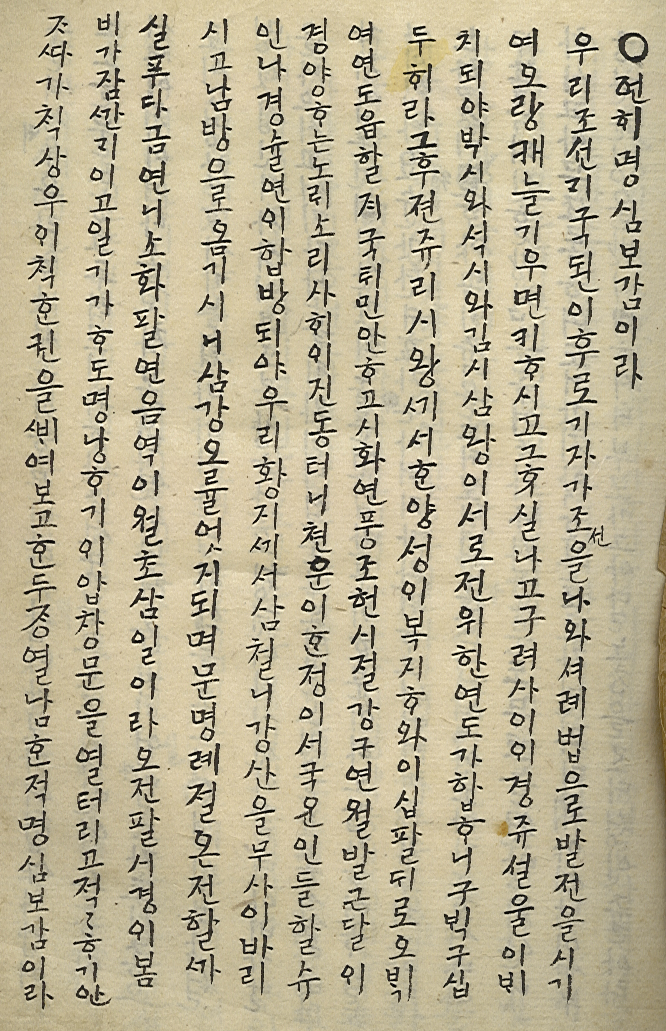 ○언히명심보감이라
우리조선긔국된이후로기자가조션을나와셔례법으로발전을시기
여오랑캐늘기우면키ᄒᆞ시고그후실나고구려사이의경쥬셜울이ᄇᆡ
치되야박시와석시와김시삼왕이서로전위한연도가합ᄒᆞ니구ᄇᆡᆨ구십
두ᄒᆡ라그후젼쥬리시왕세서ᄒᆞᆫ양성의복지ᄒᆞ와이십팔ᄃᆡ로오ᄇᆡᆨ
여연도읍할졔국ᄐᆡ민안ᄒᆞ고시화연풍조헌시절강구연월발근달의
겸양ᄒᆞ는노리소리사회의진동터니천운이ᄒᆞᆫ정이서국운인들할슈
인나경슐연의합방되야우리황지세서삼쳘니강산을무사이바리
시고남방으로옴기시니삼강오륜엇지되며문명례절온전할ᄭᅡ
실푸다금연니소화팔연음역이월초삼일이라오전팔시경의봄
비가잠ᄭᅡᆫ긔이고일기가ᄒᆞ도명낭ᄒᆞ기의압창문을열터리고적〻ᄒᆞ기안
자ᄯᅡ가칙상우의칙ᄒᆞᆫ권을ᄲᅢ여보고ᄒᆞᆫ두중열남ᄒᆞᆫ적명심보감이라